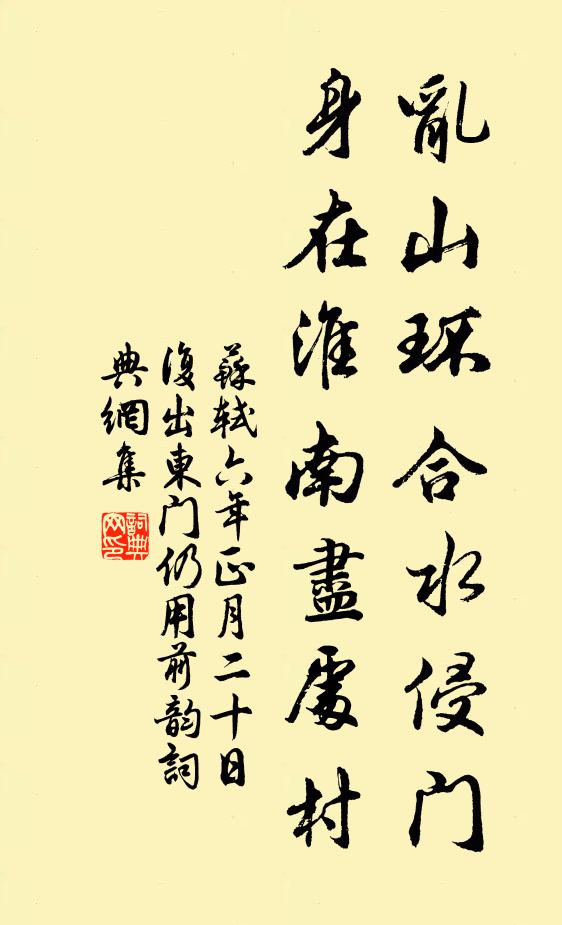 亂山環合水侵門
身在淮南盡處村
蘇軾六年正月二十日
復出東门仍用前韵詞
典網集
詞典网印